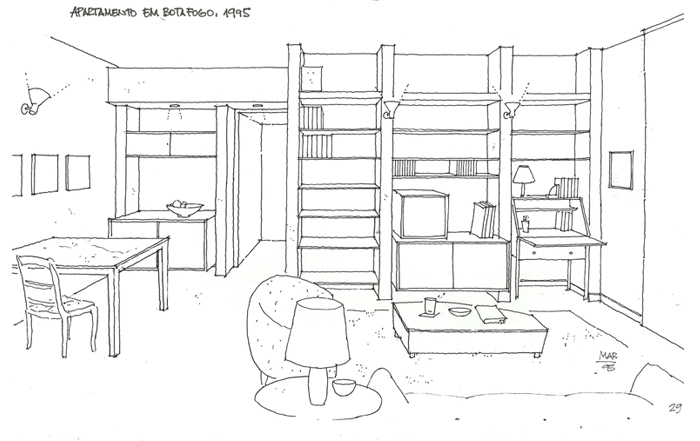 APARTAMENTO EM BOTAFOGO, 1995
MAR
95
29